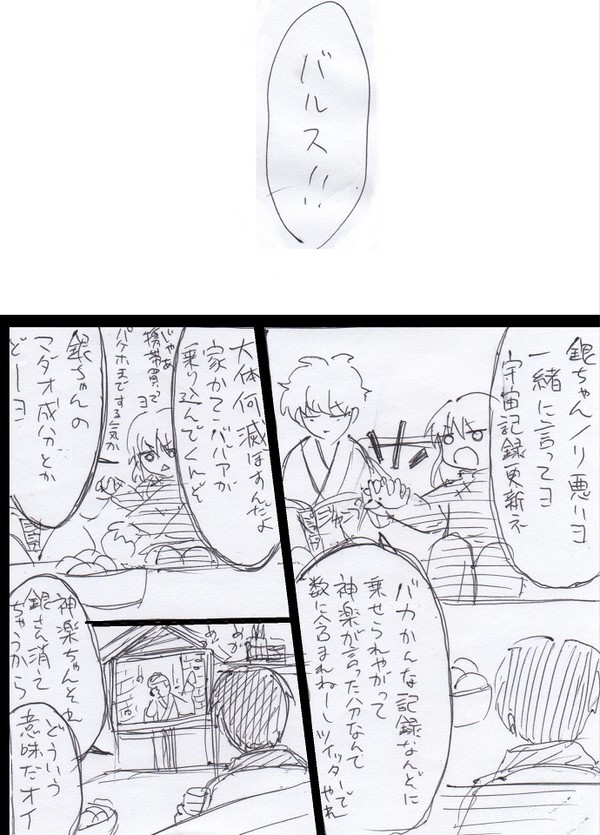 バルス!!!
銀ちゃんノリ悪いヨ
一緒に言ってヨ
宇宙記録更新ネ
バカかんな記録なんぞに
乗せられやがって
神楽が言った分なんて
数に含まれねーしツイッターでやれ
大体何滅ぼすんだよ
家かてこバルアが
乗り込んでくんぞ
じゃあ
携帯買ってヨ
パケホまでする気か
銀ちゃんの
マダオ成分とか
どーヨ
神楽ちゃんそれ
銀さん消えて
ちゃうから
どういう
意味だオイ